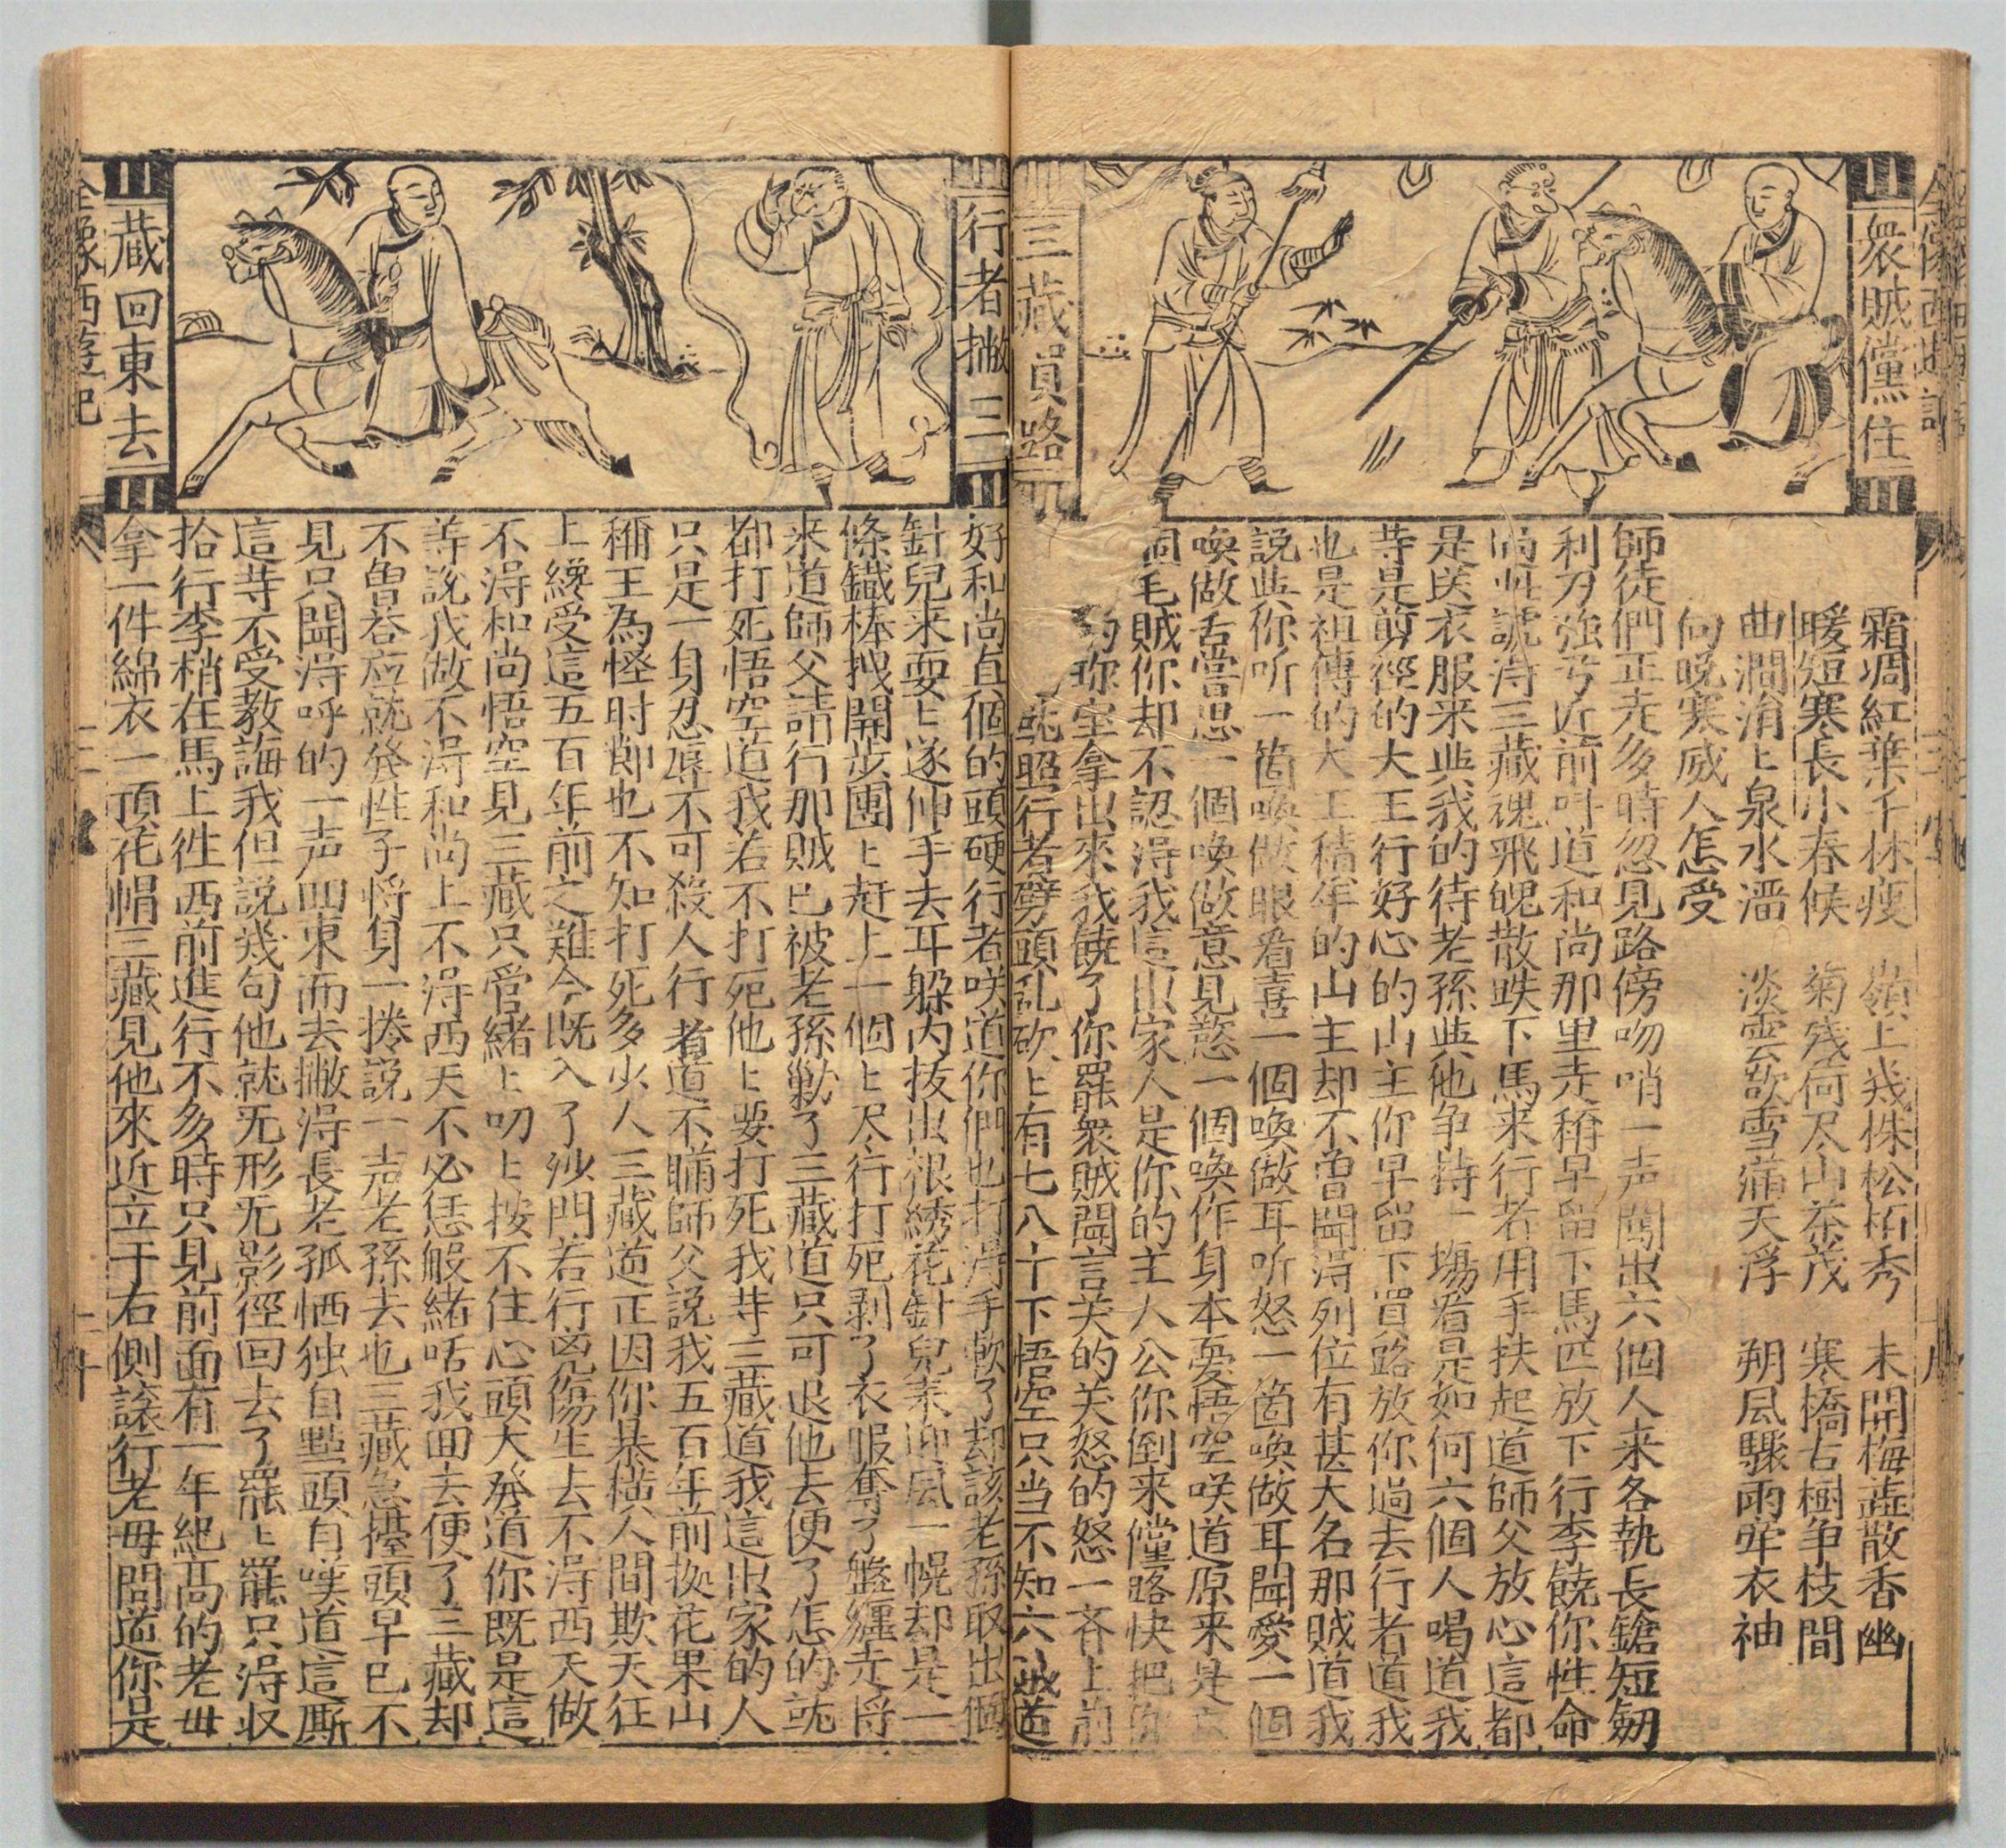 衆賊儻住
三藏員路
霜凋紅葉千林瘦　嶺上幾株松栢秀　未開梅蕋散香幽
暖短寒長小春候　菊殘何尽山茶茂　寒橋古樹争枝間
曲澗涓上泉水溜　淡雲欲雪滿天浮　朔風驟雨牢衣袖
向晚寒威人怎受
師徒們正走多時忽見路傍唿哨一声闖出六個人来各執長鎗短劒
利刃強弓近前呌道和尚那里走稍早留下馬匹放下行李饒你性命
尚唬得三藏魂飛魄散跌下馬来行者用手扶起道師父放心這都
是送衣服来與我的待老孫與他争持一塲看是如何六個人喝道我
等是剪徑的大王行好心的山主你早留下買路放你過去行者道我
也是祖傳的大王積年的山主却不曾聞得列位有甚大名那賊道我
説與你听一箇喚做眼看喜一個喚做耳听怒一箇喚做耳聞愛一個
喚做舌嘗思一個喚做意見慾一個喚作身本憂悟空咲道原来是
個毛賊你却不認得我這出家人是你的主人公你倒来儻路快把你
的珍宝拿出來我饒了你罷衆賊聞言关的关怒的怒一斉上前
乱照行者劈頭乱砍上有七八十下悟空只当不知六賊道
行者撇三
藏回東去
好和尚真個的頭硬行者咲道你們也打得手軟了却該老孫取出個
針兒来耍上遂伸手去耳躲内抜出根綉花針兒来迎風一幌却是一
條鐵棒拽開步團上赶上一個上尽行打死剥了衣服奪了盤纏走将
来道師父請行那賊已被老孫勦了三藏道只可退他去便了怎的就
都打死悟空道我若不打死他上要打死我等三藏道我這出家的人
只是一身忍辱不可殺人行者道不瞞師父説我五百年前拠花果山
稱王為怪时節也不知打死多少人三藏道正因你暴横人間欺天征
上纔受這五百年前之難今既入了沙門若行凶傷生去不得西天做
不得和尚悟空見三藏只管緒上叨上按不住心頭大發道你既是這
等説我做不得和尚上不得西天不必恁般緒咶我回去便了三藏却
不曾荅應就發性子将身一捲説一声老孫去也三藏急擡頭早已不
見只聞得呼的一声囬東而去撇得長老孤恓独自點頭自嘆道這厮
這等不受教誨我但説幾句他就无形无影徑回去了罷上罷只得収
拾行李梢在馬上徃西前進行不多時只見前面有一年紀高的老毋
拿一件綿衣一頂花帽三藏見他來近立于右側讓行老毋問道你是
全像西遊記